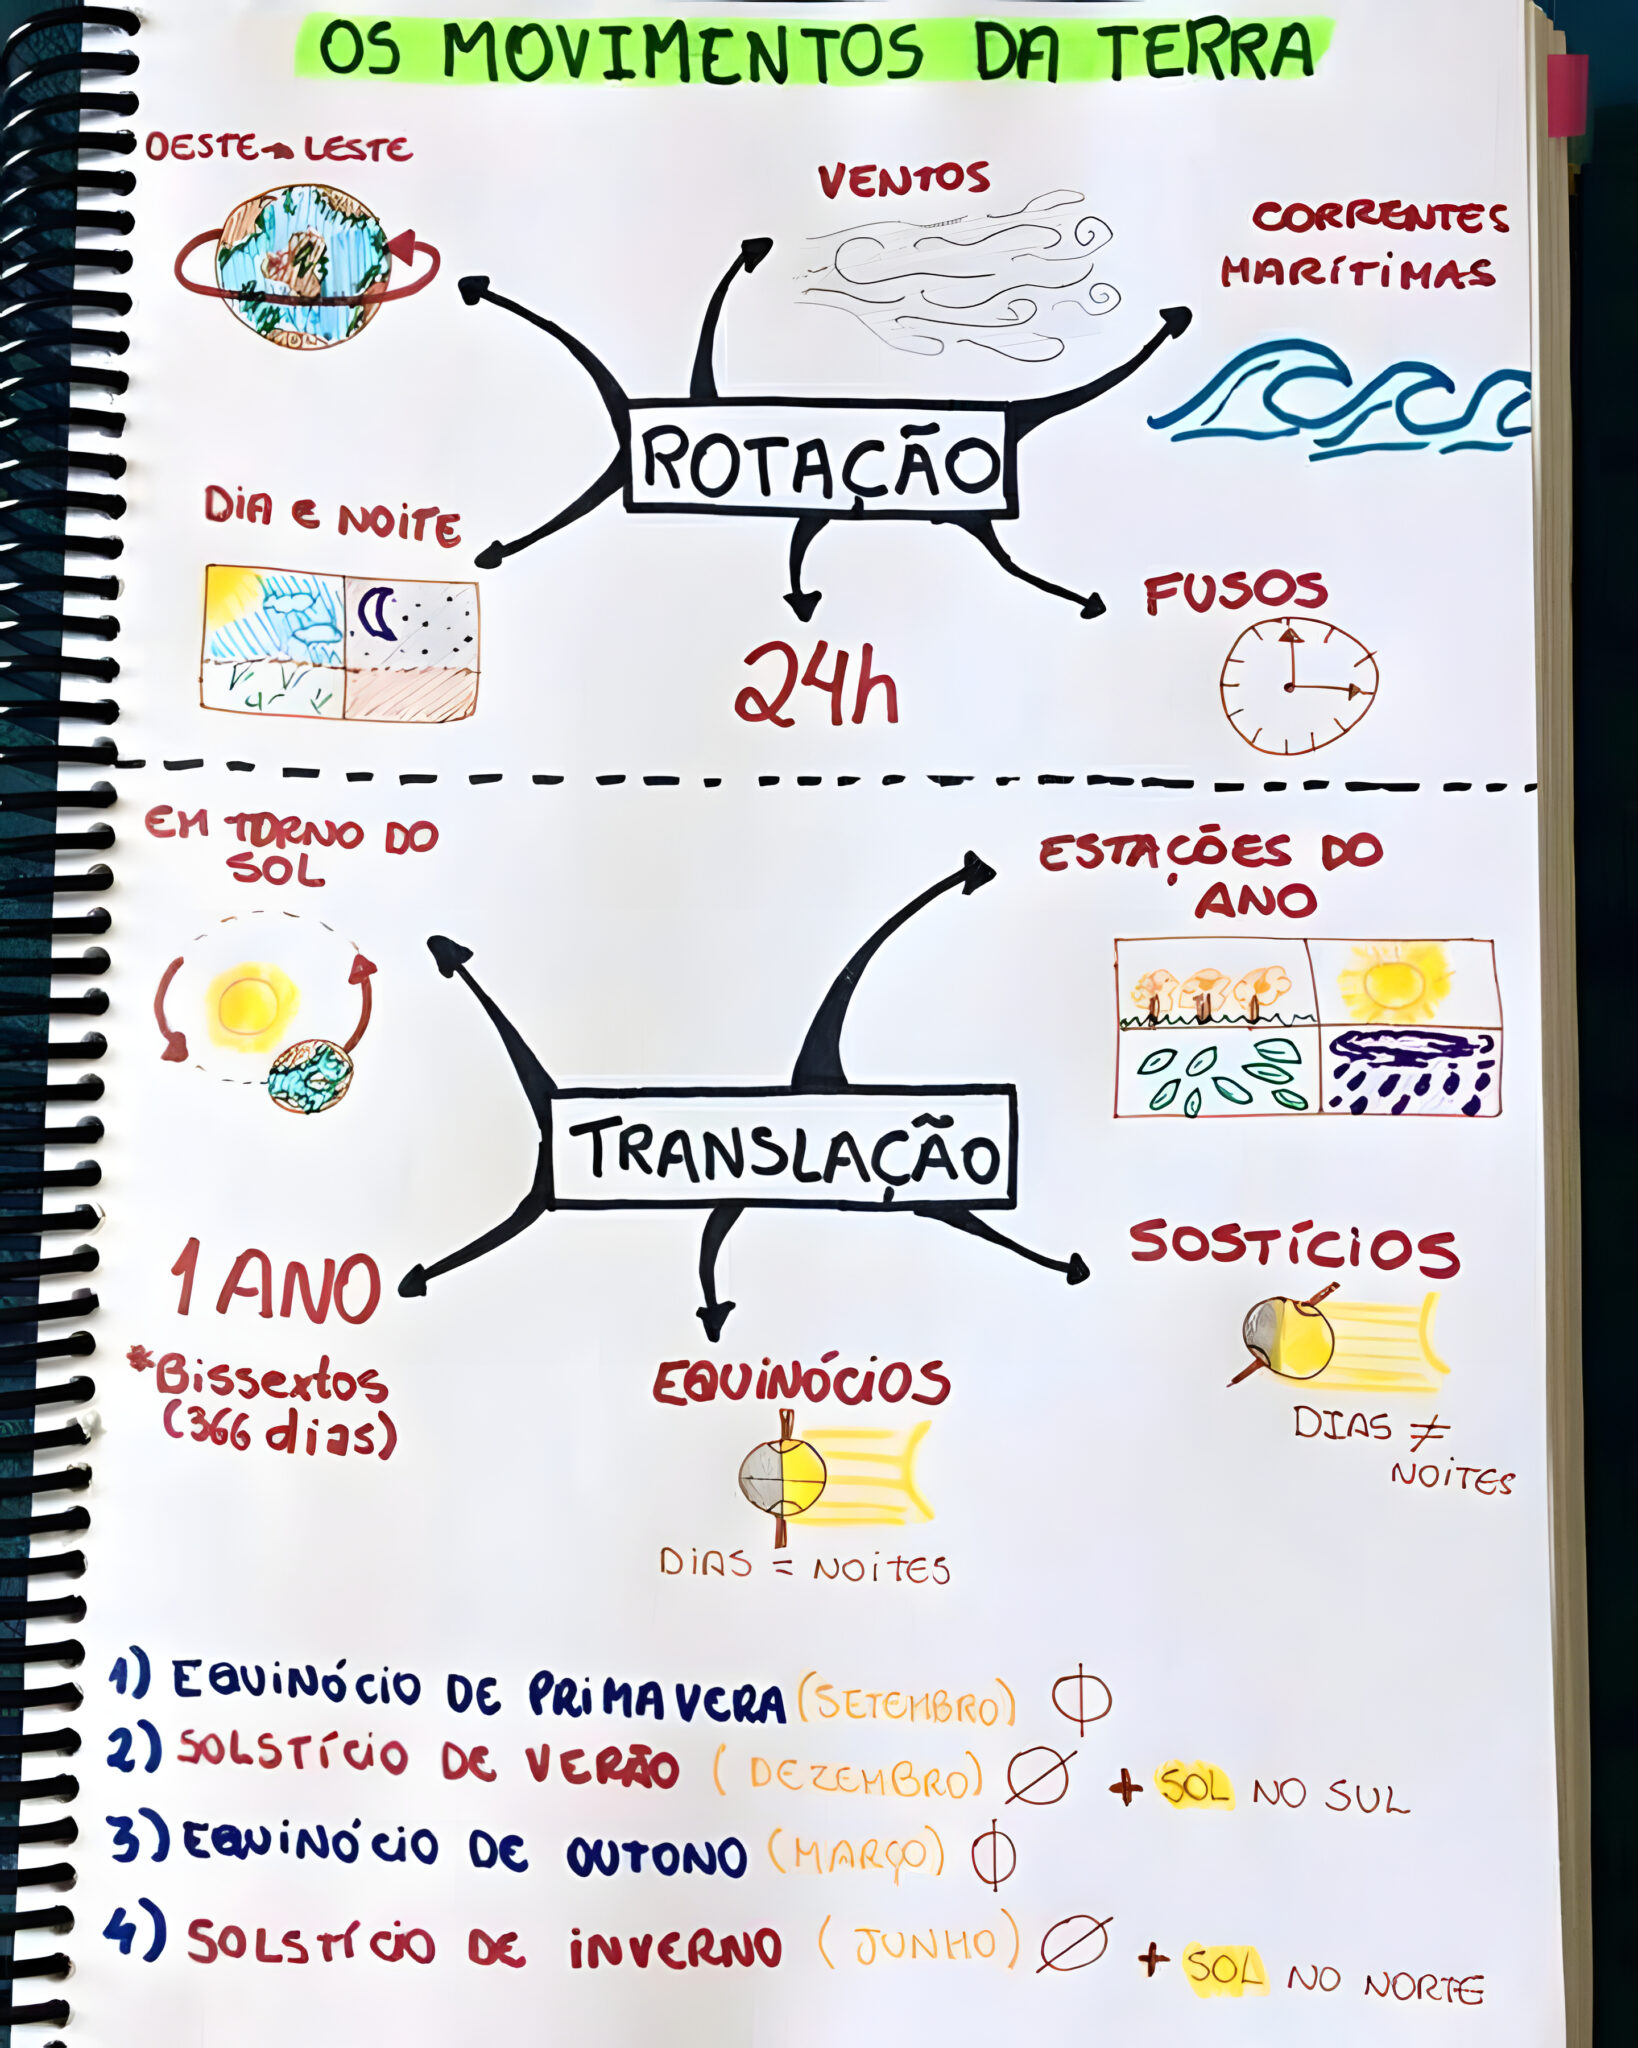 OS MOVIMENTOS DA TERRA
OESTE→LESTE
VENTOS
CORRENTES
MARÍTIMAS
ROTAÇÃO
DIA E NOITE
24h
FUSOS
EM TORNO DO
SOL
ESTAÇÕES DO
ANO
TRANSLAÇÃO
1 ANO
*Bissextos
(366 dias)
EQUINÓCIOS
DIAS = NOITES
SOSTÍCIOS
DIAS ≠
NOITES
1) EQUINÓCIO DE PRIMAVERA (SETEMBRO)
2) SOLSTÍCIO DE VERÃO (DEZEMBRO) + SOL NO SUL
3) EQUINÓCIO DE OUTONO (MARÇO)
4) SOLSTÍCIO DE INVERNO (JUNHO) + SOL NO NORTE